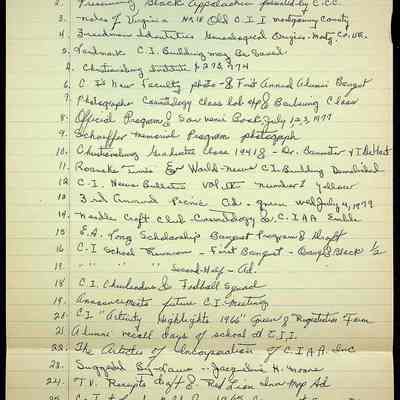 2. Preserving Black Appalachia possibly C.I.C.
3. notes of Virginia No. 18 Old C.I.I Montgomery County
4. Freedmen Identities Genealogical Origins - Motg. Co. VA.
5. Landmark C.I. Building may Be Saved.
Christiansburg Institute
6. C.I's New Faculty photo - & First Annual Alumni Banquet
7. Photographer Cosmetology Class lot 4p8 Barbering Class
8. Official Program & Souvenir Book July 1,2,3, 1977
9. Schaeffer Memorial Program photograph
10. Christiansburg Graduates Class 1941 & - Dr. Bannister &
11. Roanoke Times & World-News C.I. Building Demolished
12 C.I. News Bulletin vol. number 1 yellow
13 3rd Annual Picnic Ad. - green wed July 4, 1979
14. Needle Craft Club - Cosmetology & C.I.A.A Emble
15 E.A. Long Scholarship Banquet Program & Draft
16 C.I School Reunion - First Banquet - Orange & Black 1/2
17. " " " " Second-Half - Ad.
18 C.I. Cheerleaders & Football Squad
19. Announcements future C.I. Meeting
20. C.I. "Activity Highlights 1966" Green & "Registration Form
21 Alumni recall days of school at C.I.I.
22. The Articles of Incorporation of C.I.A.A. Inc
23. Suggested By-Laws - Jacqueline H. Moore
24. T.V. Receipts draft & Red Lion Inn Map Ad